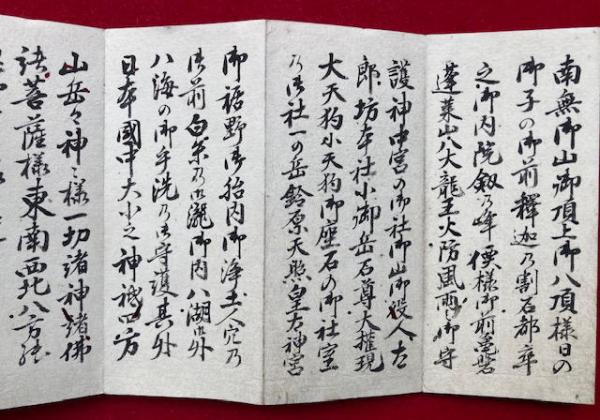 南無御山御頂上御八項様日の
御子の御前釋迦乃割石都卒
之御内院釼乃峰様御前亀磐
蓬莱山八大龍王火防風雨之御守
護神中宮の御社御山御役人太
郎坊本社小御岳石尊大権現
大天狗小天狗御座石の御社室
乃御社一の岳鈴原天照皇太神宮
御裾野御胎内御浄土人穴乃
御前白糸乃御瀧御内八湖御外
八海の御手洗乃御守護其外
日本國中大小之神祇四方
山岳々神々様一切諸神諸佛
諸菩薩様東南西北八方